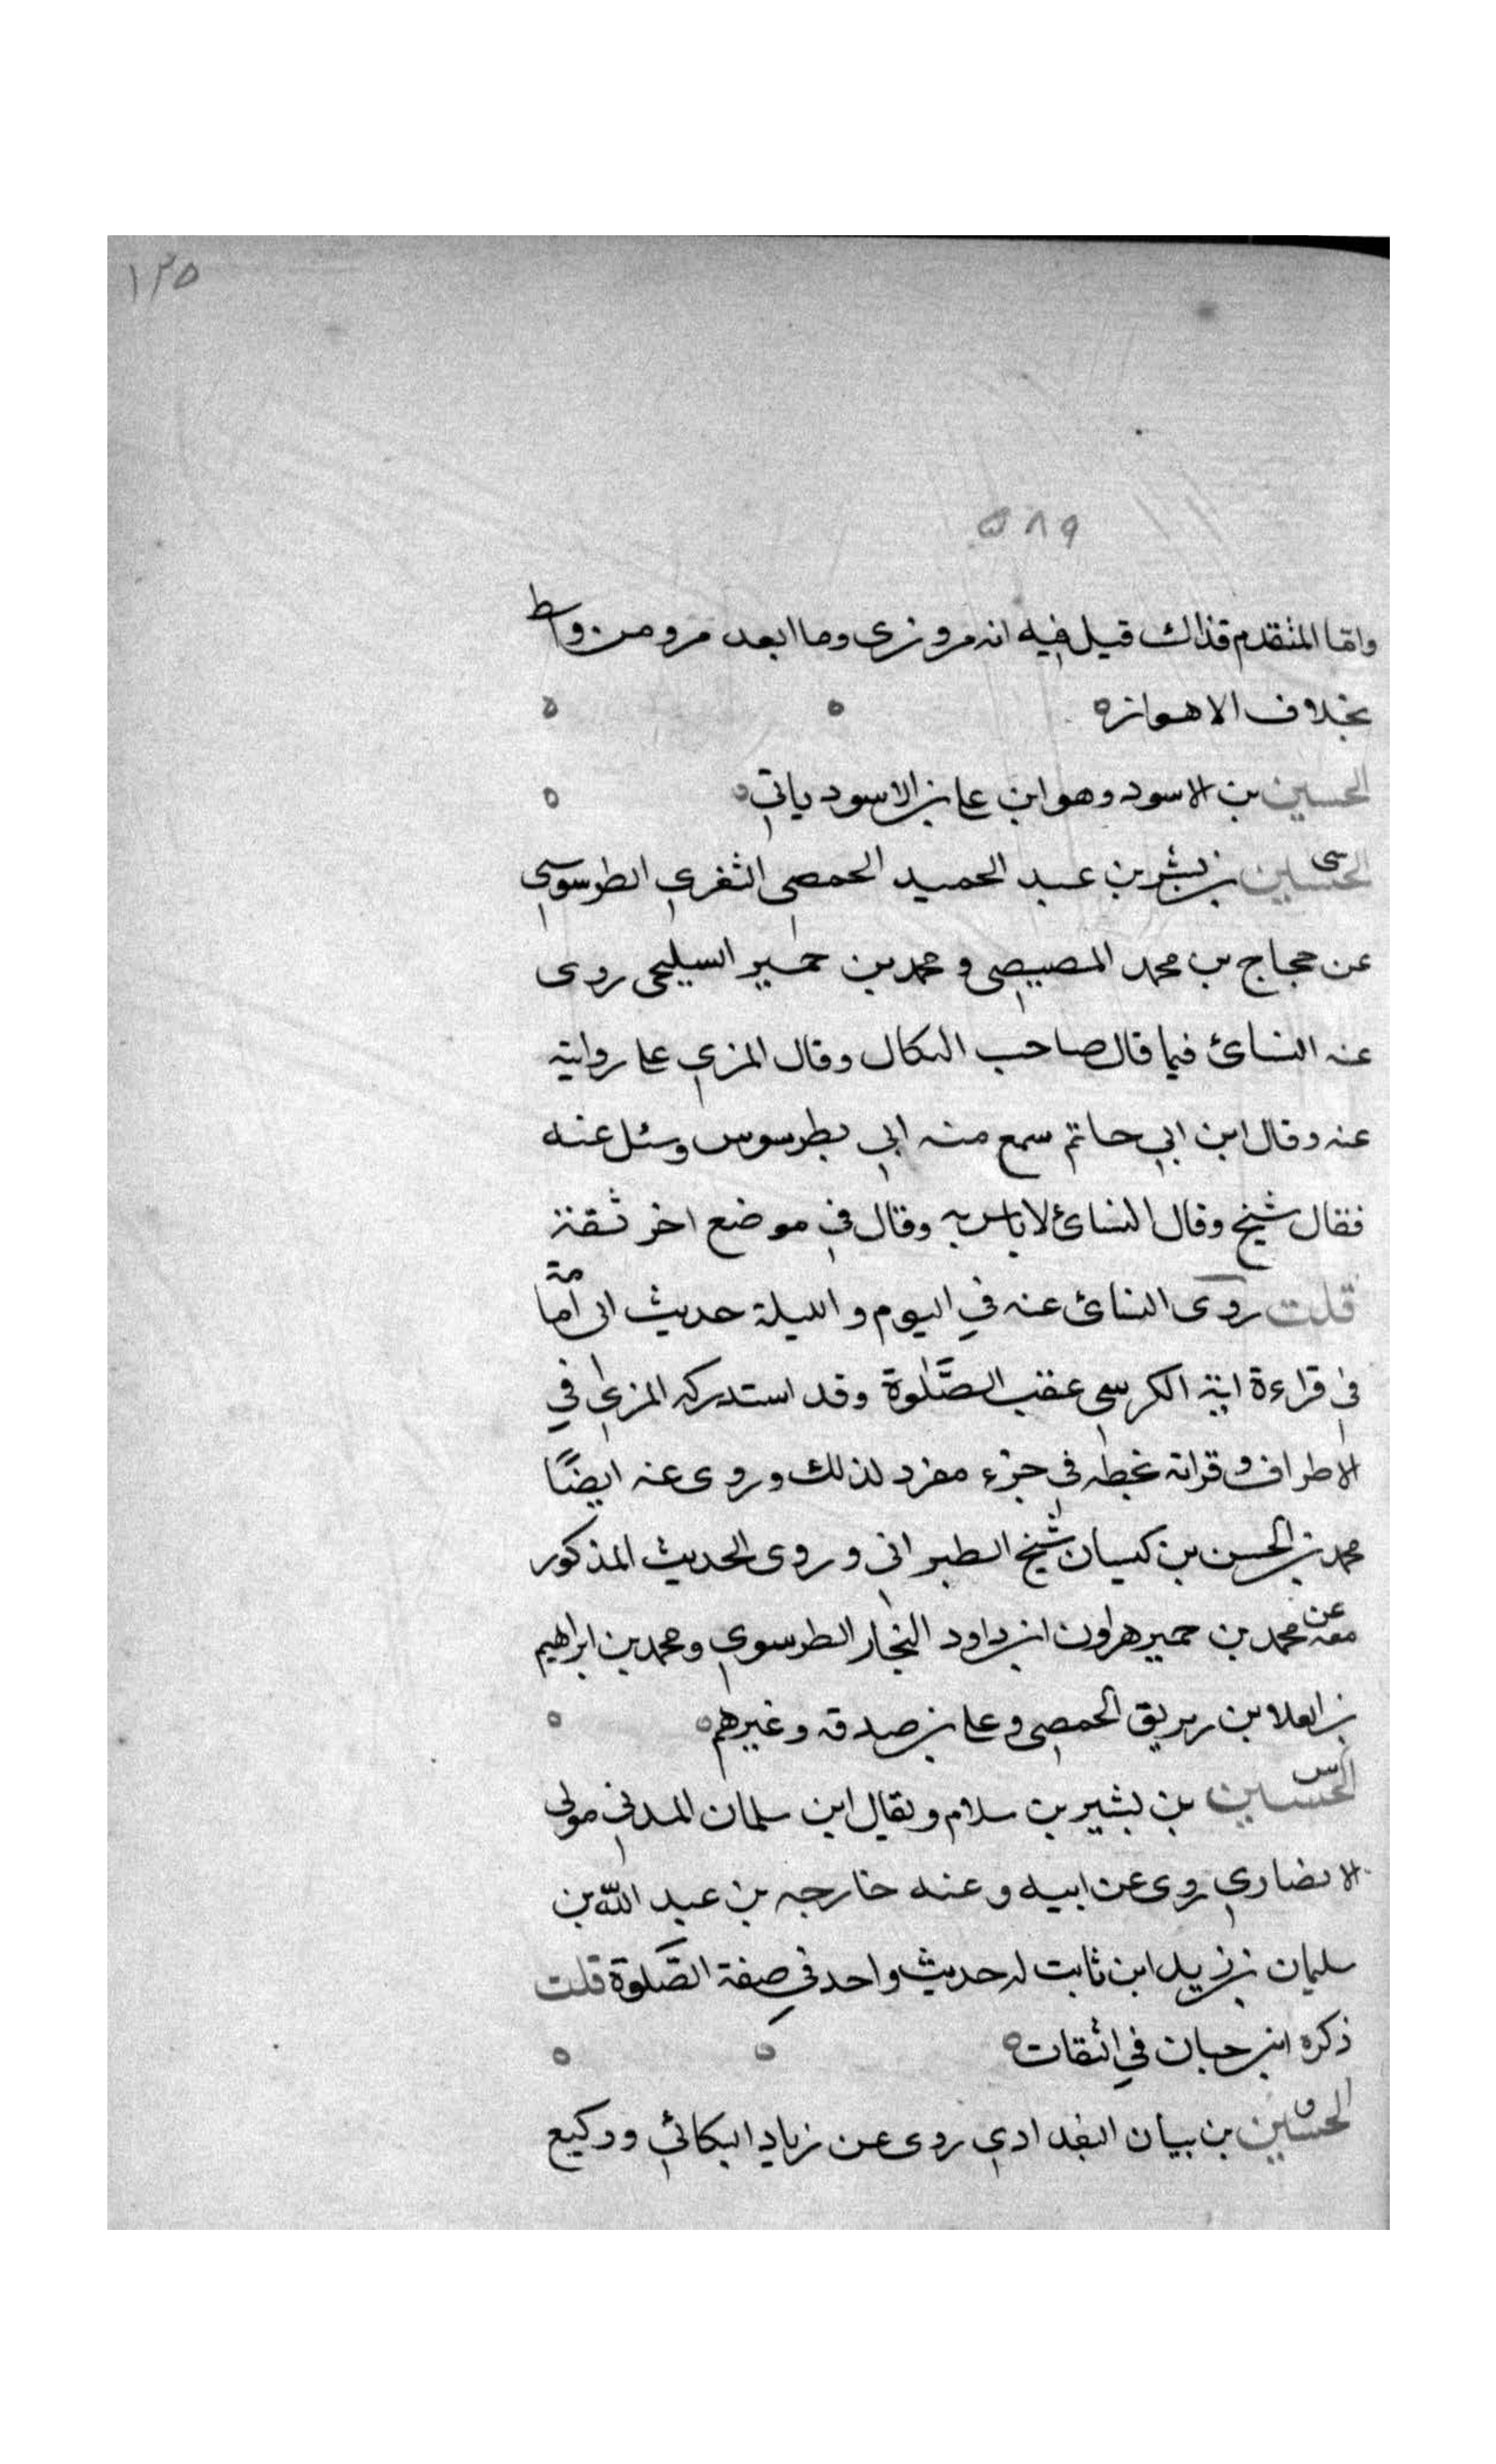 ١٣٥
٥٨٩
واما المتقدم فذاك قيل فيه انه مروزى وما ابعد مرو من واسط
بخلاف الاهواز ه
الحسين بن الاسود وهو ابن على بن الاسود ياتي ه
سى الحسين بن بشر بن عبد الحميد الحمصى الثغري الطرسوسي
عن حجاج بن محمد المصيصي ومحمد بن حمير السليحى روى
عنه النسائ فيما قال صاحب الكمال وقال المزي على روايته
عنه وقال ابن ابي حاتم سمع منه ابي بطرسوس وسئل عنه
فقال شيخ وقال النسائ لا باس به وقال في موضع اخر ثقة
قلت روى النسائ عنه في اليوم والليلة حديث ابى اما مة
في قراءة اية الكرسي عقب الصَّلوة وقد استدركه المزي في
الاطراف وقراته بخطه في جزء مفرد لذلك وروى عنه ايضًا
محمد بن الحسن بن كيسان شيخ الطبراني وروى الحديث المذكور
معه عن محمد بن حمير هراون ابن داود النجار الطرسوسي ومحمد بن ابراهيم
بن العلا بن زبريق الحمصي وعلى بن صدقه وغيرهم ه
س الحسين بن بشير بن سلام ويقال ابن سلمان المدني مولى
الانصاري روى عن ابيه وعنه خارجه بن عبد الله بن
سليمان بن زيد ابن ثابت له حديث واحد في صفة الصَّلوة قلت
ذكره ابن حبان في الثقات ه
ق الحسين بن بيان البغدادي روى عن زياد البكائي ووكيع